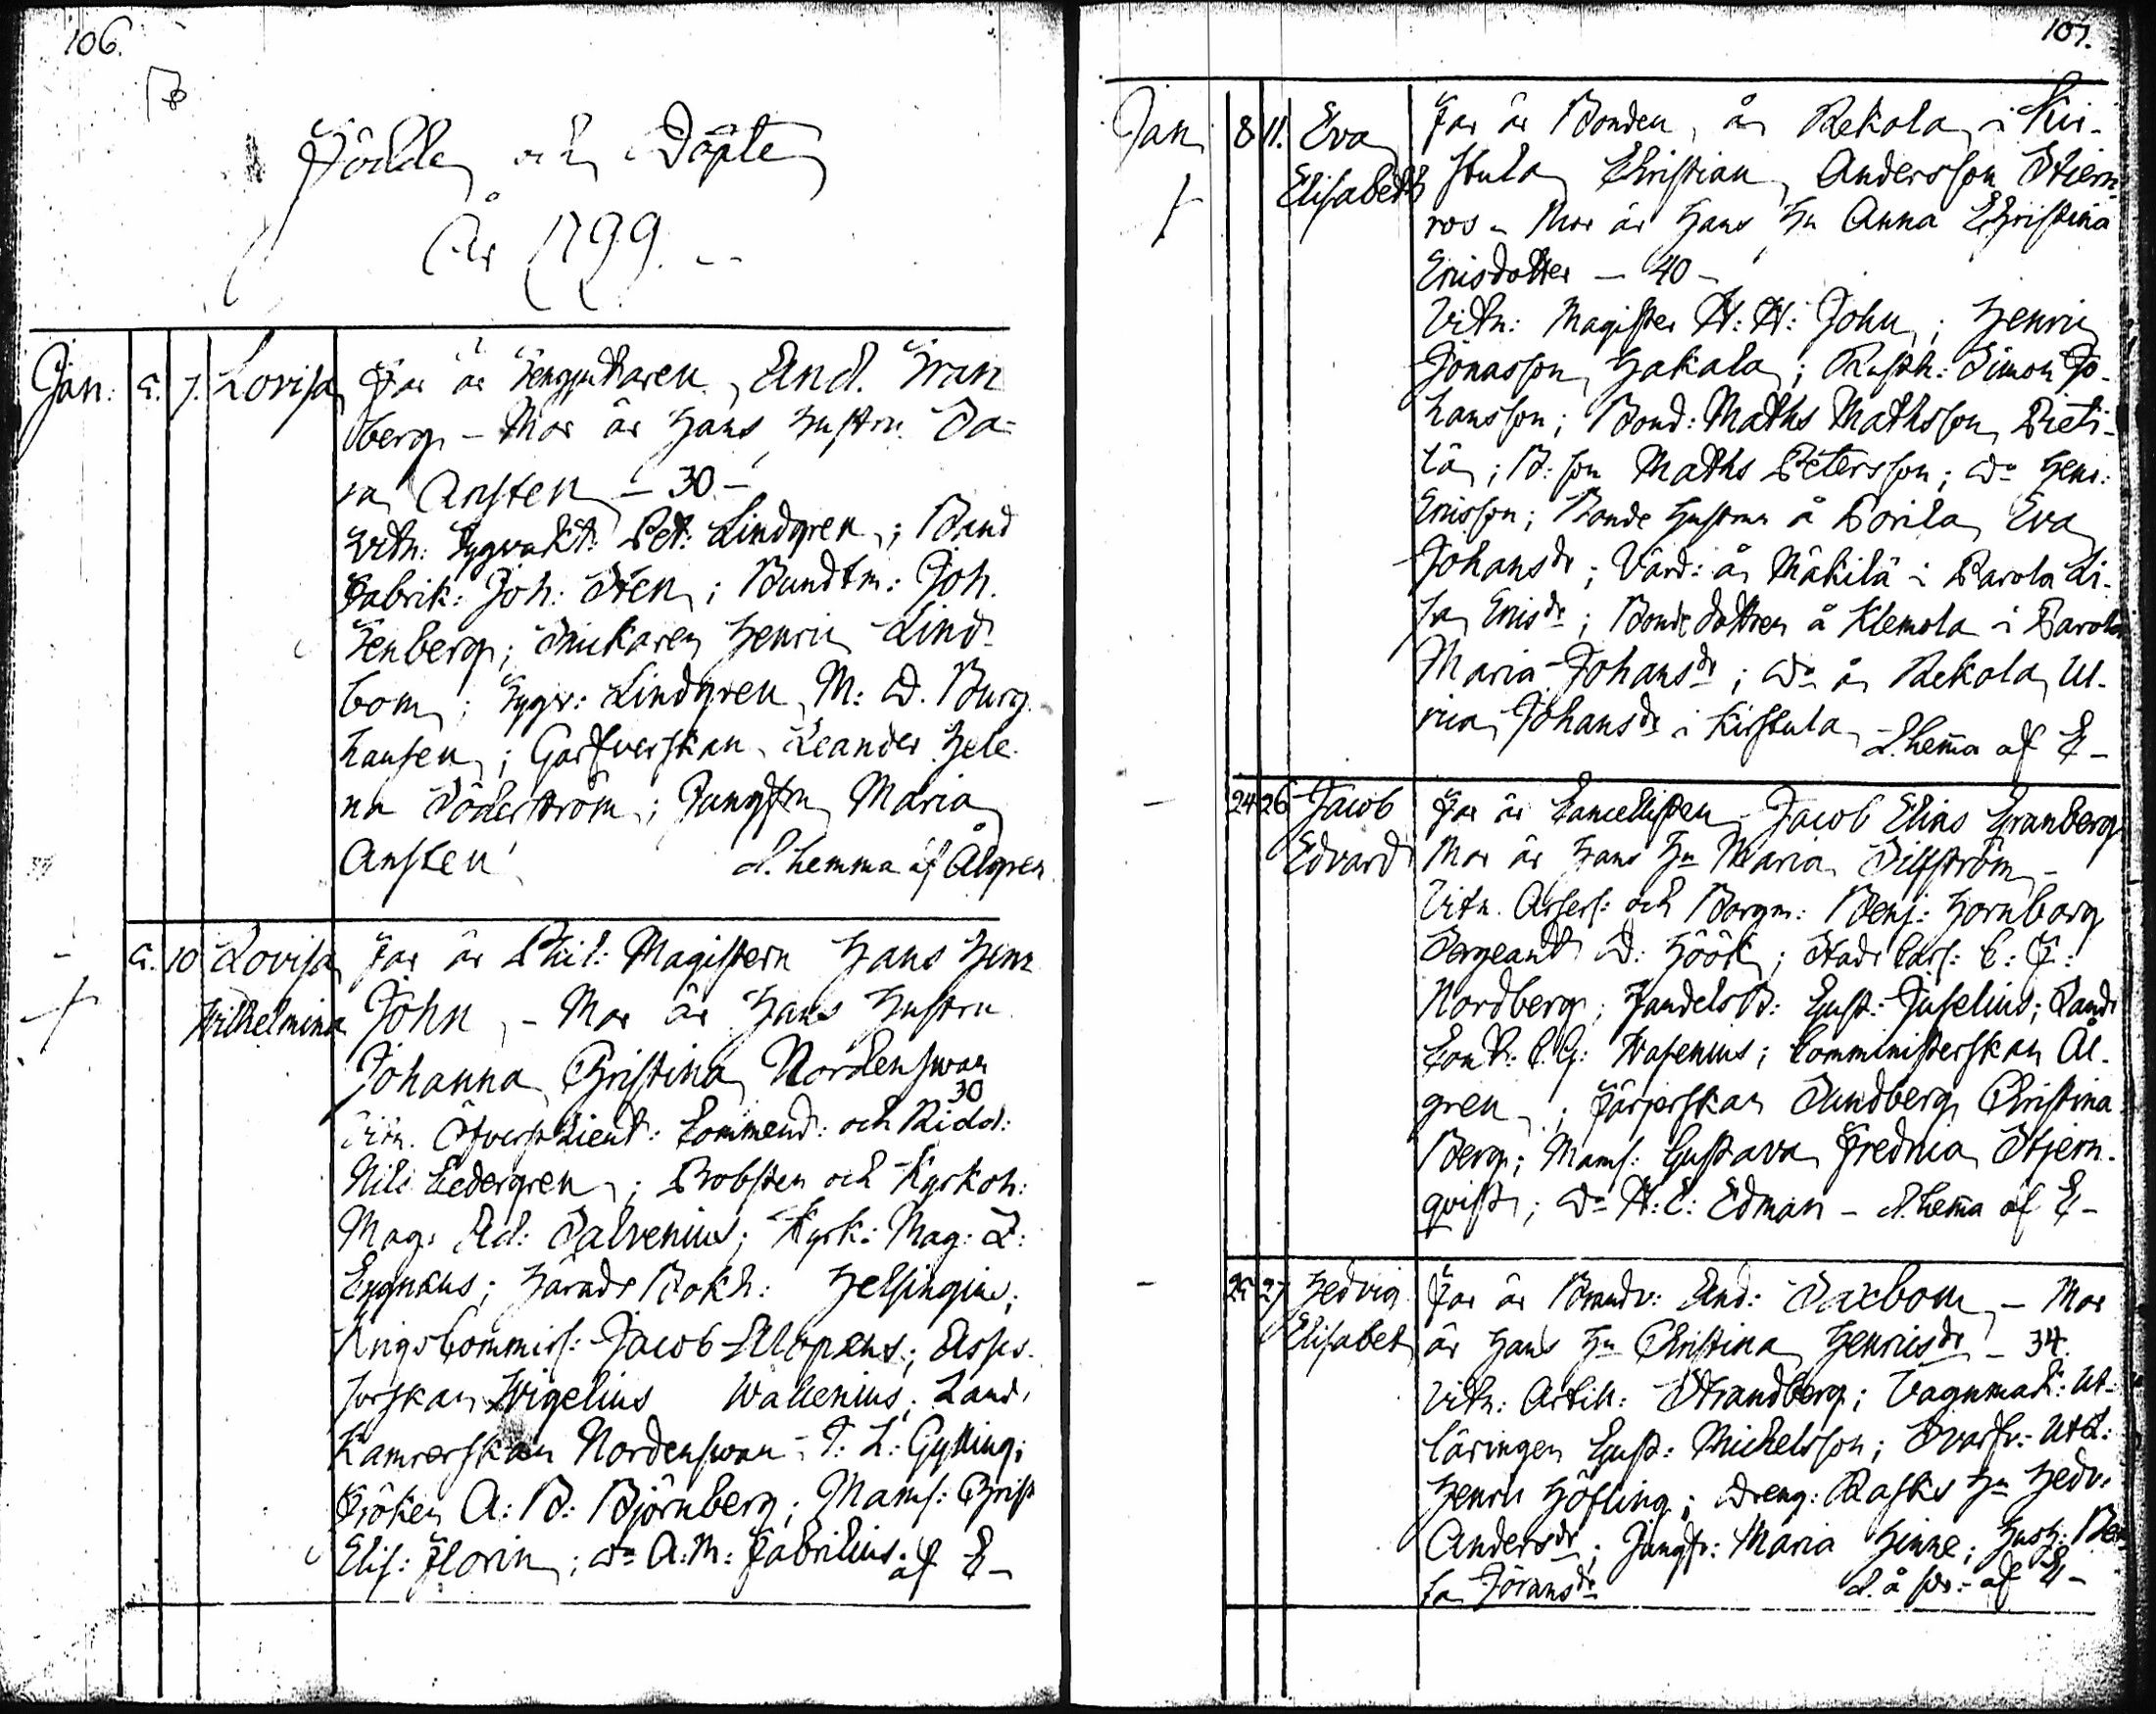 106.
Födde och Döpte
År 1799.
Jan: 5. 7. Lovisa Far är And. Gran
berg - Mor är Hans Hustru Sa=
ra Ansten - 30 -
Vitn: Tygvakt: Pet: Lindgren; Band
Fabrik: Joh: Sten; Bundtm: Joh.
Tenberg; Snickaren Henric Lind-
bom; Tygv: Lindgren M: D. Burg-
hausen; Garfverskan Leander Hele-
na Söderström; Jungfru Maria
Ansten d. hemma af Ålgren
5. 10 Lovisa Wilhelmina Far är Phil: Magistern Hans Henr
John, - Mor är Hans Hustru
Johanna Christina Nordenswan
30
Vitn. Öfverstlieut: Commend: och Ridd:
Nils Cedergren; Probsten och Kyrkoh:
Mag: Ad: Salvenius; Kyrk: Mag: Z:
Cygnæus; Härads Bokh: Helsingius;
Krigs Commiss: Jacob Alopæus; Asses-
sorskan Wigelius Wallenius; Land-
Kamrerskan Nordenswan; T: L: Gylling;
Fröken A: B: Björnberg; Mams: Christ
Elis: Florin; do A: M: Fabrilius. af E-
107.
Jan 8 11. Eva Elisabeth Far är Bonden å Rekola i Kir-
stula Christian Andersson Stiern
ros - Mor är Hans Hu Anna Christina
Ericsdotter - 40 -
Vitn: Magister H: H: John; Henric
Jonasson Hakala; Rusth: Simon Jo-
hansson; Bond: Maths Mathsson Pieti-
lä; B: son Maths Petersson; do Henr:
Ericsson; Bonde Hustrun å Porila Eva
Johansdr; Värd: å Mäkilä i Parola Li-
sa Ericsdr; Bonde dottren å Klemola i Parola
Maria Johansdr; do å Rekola Ul-
rica Johansdr i Kirstula d. hem̄a af E-
24 26 Jacob Edvard Far är Cancellisten Jacob Elias Granberg
Mor är Hans Hu Maria Silfström -
Vitn. Assess: och Borgm: Benj: Hornborg
Sergeant D: Höök; Stads Cass: C: F:
Nordberg; Handelsb: Gust: Juselius; Lands
Cont: C. G: Wasenius; Comministerskan Ål-
gren; Färjerskan Sundberg Christina
Berg; Mams: Gustava Fredrica Stjern-
qvist; do H: C: Edman - d. hem̄a af E-
25 27 Hedvig Elisabet Far är Brandv: And: Saxbom - Mor
är Hans Hu Christina Henricsdr - 34.
Vitn: Artill: Strandberg; Vagnmak: Ut-
läringen Gust: Michelsson; Svarfv: Utl:
Henric Höfling; Dreng: Rasks Hu Hedv:
Andersdr; Jungfr: Maria Hinne; Hush: Bea
ta Jöransdr d. å af E-